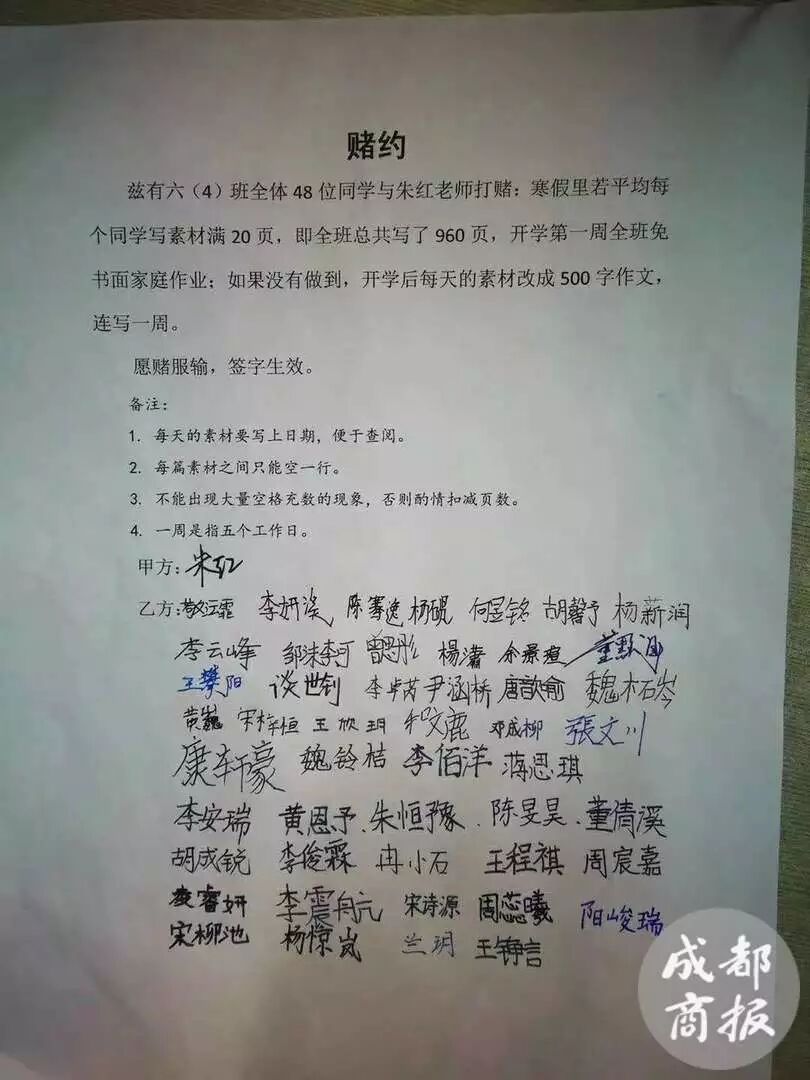 赌约
兹有六（4）班全体 48 位同学与朱红老师打赌：寒假里若平均每
个同学写素材满 20 页，即全班总共写了 960 页，开学第一周全班免
书面家庭作业；如果没有做到，开学后每天的素材改成 500 字作文，
连写一周。
愿赌服输，签字生效。
备注：
1. 每天的素材要写上日期，便于查阅。
2. 每篇素材之间只能空一行。
3. 不能出现大量空格充数的现象，否则酌情扣减页数。
4. 一周是指五个工作日。
甲方：朱红
乙方： 李妍 陈 杨 何昱铭 胡馨予 杨薪润
李云峰 邹沫李可 曾 楊 余景 董
王樊阳 谈世钊 李卓芮 尹涵桥 唐歆瑜 魏
黄巍 宋梓恒 王欣玥 文鹿 邓成柳 張文川
康轩豪 魏铃桔 李佰洋 蒋思琪
李安瑞 黄恩予 朱恒豫 陈旻昊 董倩溪
胡成锐 李俊霖 冉小石 王程祺 周宸嘉
凌睿妍 李震航 宋诗源 周蕊曦 阳峻瑞
宋柳池 杨惊岚 兰玥 王铮言
成都
商报